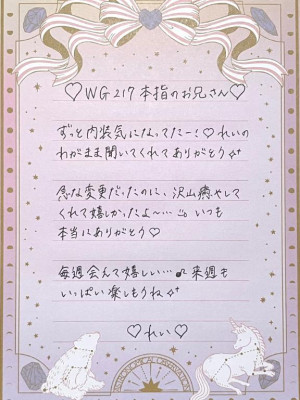 ♡WG217本指のお兄さん♡
ずっと内装気になってたー！♡れいの
わがまま聞いてくれてありがとう✨
急な変更だったのに、沢山癒やして
くれて嬉しかったよ〜…♨いつも
本当にありがとう♡
毎週会えて嬉しい…♪来週も
いっぱい楽しもうね✨
♡れい♡